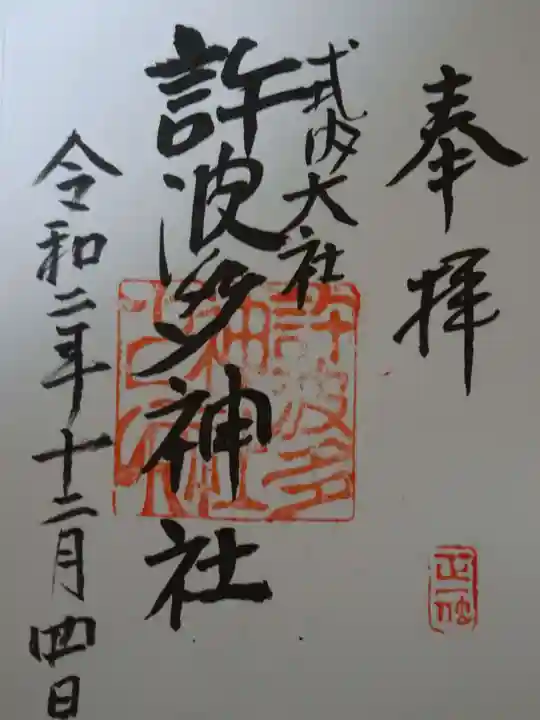 奉拝
式内大社
許波多神社
許波多
神社
令和二年十二月四日